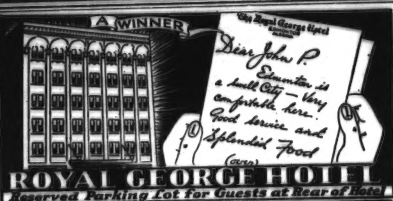 A WINNER
The Royal George Hotel
Dear John P.
Edmonton is
a swell City - Very
comfortable here.
Good service and
Splendid Food
(over)
ROYAL GEORGE HOTEL
Reserved Parking Lot for Guests at Rear of Hotel